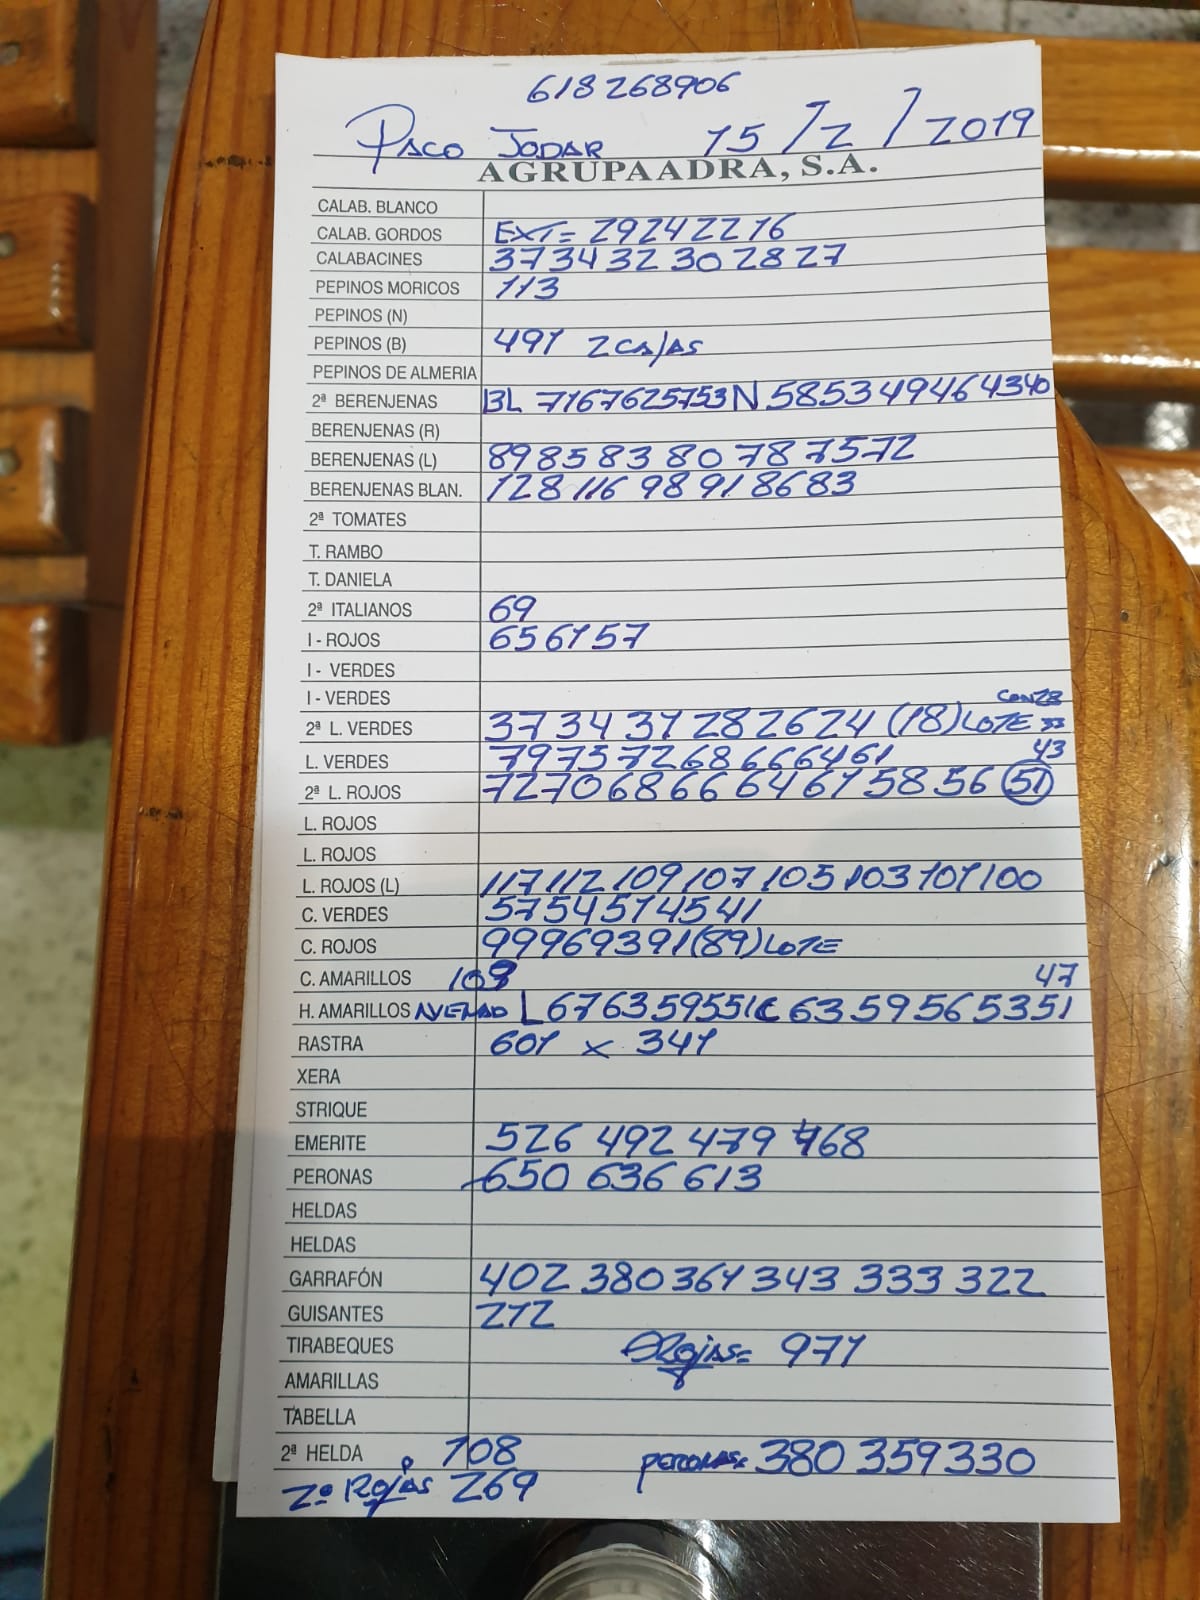 618268906
PACO JODAR 15/2/2019
AGRUPAADRA, S.A.
CALAB. BLANCO
CALAB. GORDOS EXT= 29 24 22 16
CALABACINES 37 34 32 30 28 27
PEPINOS MORICOS 113
PEPINOS (N)
PEPINOS (B) 491 2 CAJAS
PEPINOS DE ALMERIA
2ª BERENJENAS BL 71 67 62 57 53 N 58 53 49 46 43 40
BERENJENAS (R)
BERENJENAS (L) 89 85 83 80 78 75 72
BERENJENAS BLAN. 128 116 98 91 86 83
2ª TOMATES
T. RAMBO
T. DANIELA
2ª ITALIANOS 69
I - ROJOS 65 61 57
I - VERDES
I - VERDES
2ª L. VERDES 37 34 31 28 26 24 (18) LOTE
L. VERDES 79 75 72 68 66 64 61 43
2ª L. ROJOS 72 70 68 66 64 61 58 56 51
L. ROJOS
L. ROJOS
L. ROJOS (L) 117 112 109 107 105 103 101 100
C. VERDES 57 54 51 45 41
C. ROJOS 99 96 93 91 (89) LOTE
C. AMARILLOS 47
H. AMARILLOS L 67 63 59 55 51 C 63 59 56 53 51
RASTRA 601 x 341
XERA
STRIQUE
EMERITE 526 492 479 468
PERONAS 650 636 613
HELDAS
HELDAS
GARRAFÓN 402 380 361 343 333 322
GUISANTES 212
TIRABEQUES ROJAS= 971
AMARILLAS
TABELLA
2ª HELDA 108 PERONAS= 380 359 330
2ª ROJAS 269